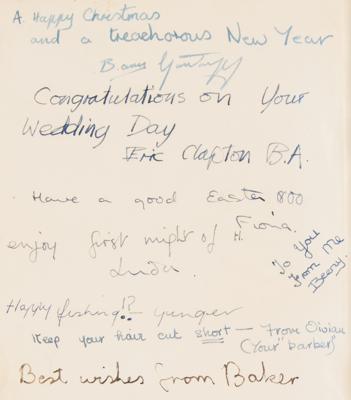 A. Happy Christmas
and a treachorous New Year
Congratulations on Your
Wedding Day
Eric Clapton B.A.
Have a good Easter 800
Fiona.
enjoy first night of H.
To You
From Me
Happy fishing!?
Keep your hair cut short — From Vivian
(Your "barber")
Best wishes from Baker